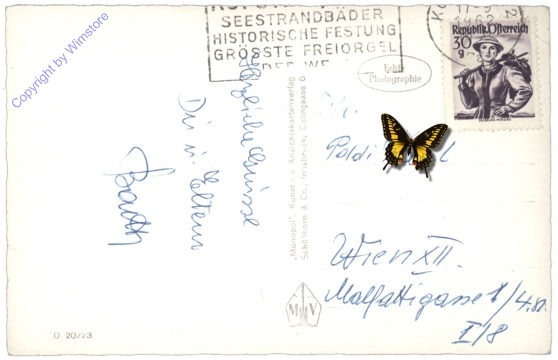 Copyright by Wimstore
SEESTRANDBÄDER
HISTORISCHE FESTUNG
GRÖSSTE FREIORGEL
DER WE
1962
Republik Österreich
30
g
Echte
Photographie
Herzliche Grüsse
Din u. Eltern
"Monopol", Kunst- u. Ansichtskartenverlag
Schöllhorn & Co., Innsbruck, Colingasse 5
Poldi
Wien XII.
Malfattigasse 1/4. St.
I/8
M V
O 20223